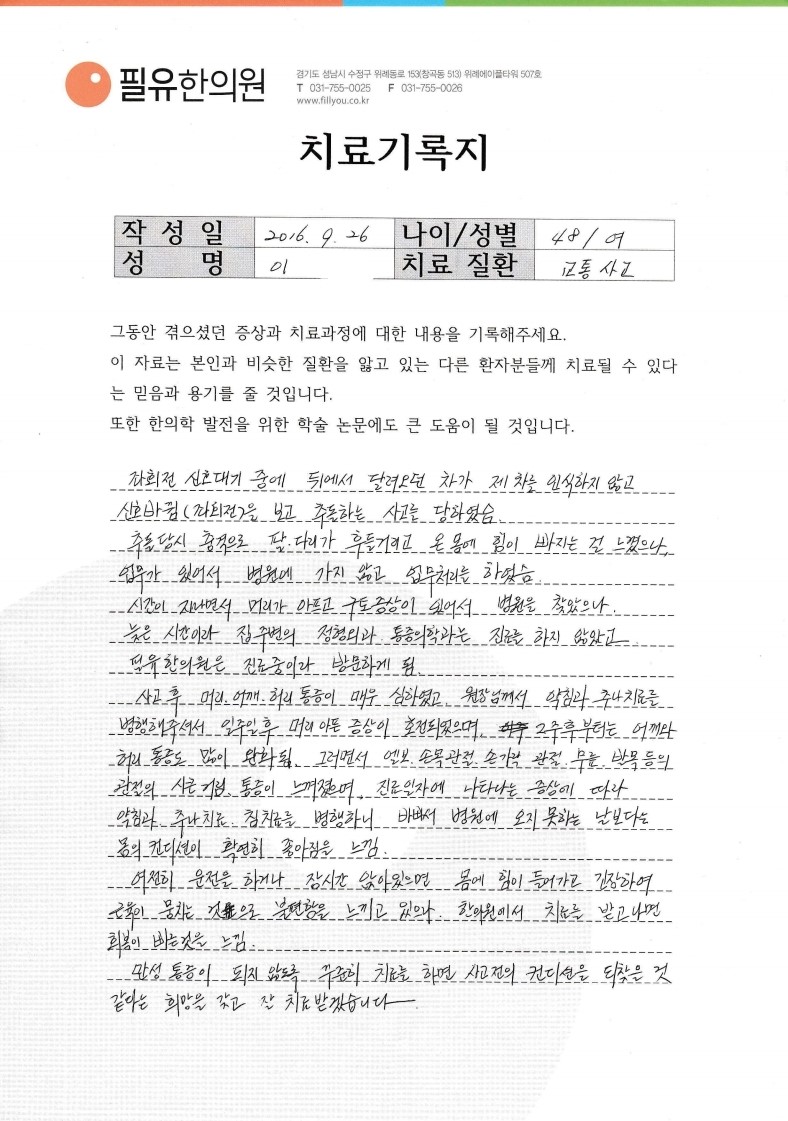 필유한의원
경기도 성남시 수정구 위례동로 153(창곡동 513) 위례에이플타워 507호
T 031-755-0025 F 031-755-0026
www.fillyou.co.kr
치료기록지
작 성 일 2016. 9. 26 나이/성별 48/여
성 명 이 치료 질환 교통사고
그동안 겪으셨던 증상과 치료과정에 대한 내용을 기록해주세요.
이 자료는 본인과 비슷한 질환을 앓고 있는 다른 환자분들께 치료될 수 있다
는 믿음과 용기를 줄 것입니다.
또한 한의학 발전을 위한 학술 논문에도 큰 도움이 될 것입니다.
좌회전 신호대기 중에 뒤에서 달려오던 차가 제 차를 인식하지 않고
신호바뀜(좌회전)을 보고 추돌하는 사고를 당하였슴.
추돌당시 충격으로 팔.다리가 후들거리고 온 몸에 힘이 빠지는 걸 느꼈으나,
업무가 있어서 병원에 가지 않고 업무처리를 하였슴.
시간이 지나면서 머리가 아프고 구토증상이 있어서 병원을 찾았으나.
늦은 시간이라 집 주변의 정형외과. 통증의학과는 진료를 하지 않았고
필유한의원은 진료중이라 방문하게 됨.
사고 후 머리.어깨.허리 통증이 매우 심하였고 원장님께서 약침과 추나치료를
병행해주셔서 일주일후 머리 아픈 증상이 호전되었으며, 2주후부터는 어깨와
허리 통증도 많이 완화됨. 그러면서 엘보.손목관절.손가락 관절.무릎.발목 등의
관절의 시큰거림. 통증이 느껴졌으며, 진료일자에 나타나는 증상에 따라
약침과. 추나치료. 침치료를 병행하니 바빠서 병원에 오지 못하는 날보다는
몸의 컨디션이 확연히 좋아짐을 느낌.
여전히 운전을 하거나 장시간 앉아있으면 몸에 힘이 들어가고 긴장하여
근육이 뭉치는 것으로 불편함을 느끼고 있으나. 한의원에서 치료를 받고나면
회복이 빠른것을 느낌.
만성 통증이 되지 않도록 꾸준히 치료를 하면 사고전의 컨디션을 되찾을 것
같다는 희망을 갖고 잘 치료받겠습니다